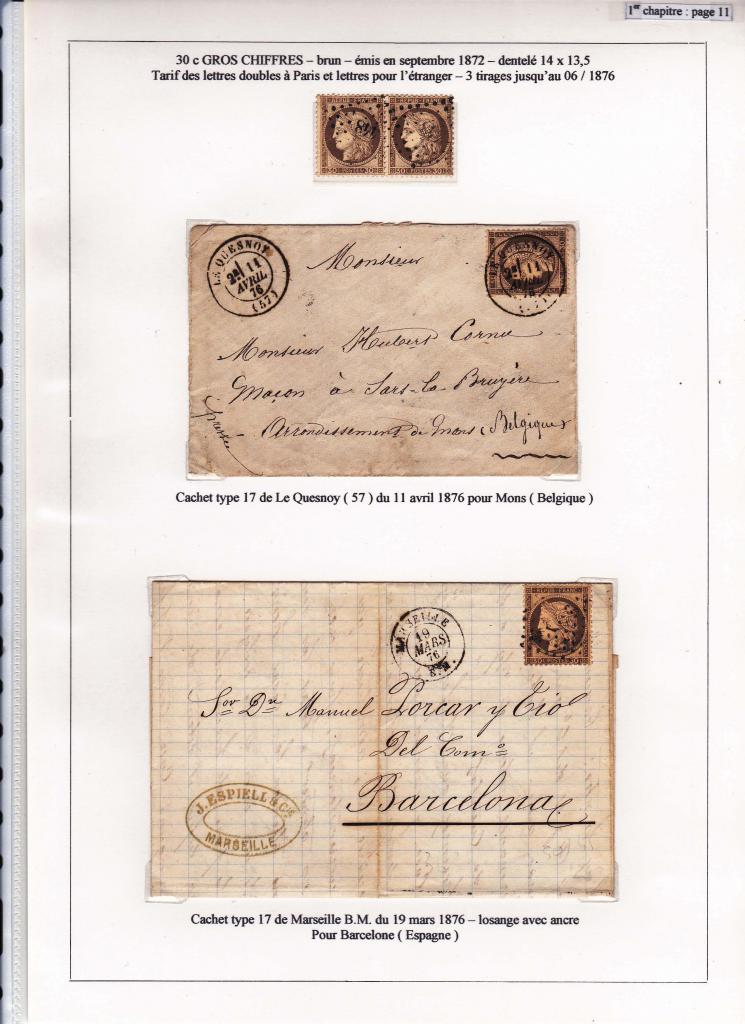 1er chapitre : page 11
30 c GROS CHIFFRES – brun – émis en septembre 1872 – dentelé 14 x 13,5
Tarif des lettres doubles à Paris et lettres pour l'étranger – 3 tirages jusqu'au 06 / 1876
30 POSTES 30
30 POSTES 30
LE QUESNOY
2E 11
AVRIL
76
(57)
LE QUESNOY
2E 11
AVRIL
76
Monsieur
Monsieur Hubers Cornu
Maçon à Sars-la Bruyère
Arrondissement de Mons (Belgique)
pressée
Cachet type 17 de Le Quesnoy ( 57 ) du 11 avril 1876 pour Mons ( Belgique )
REPUB FRANC
30 POSTES 30
MARSEILLE
19
MARS
76
B.M.
Sor Dn Manuel Porcar y Tio
Del Como
Barcelona
J. ESPIELL & Cie
MARSEILLE
Cachet type 17 de Marseille B.M. du 19 mars 1876 – losange avec ancre
Pour Barcelone ( Espagne )